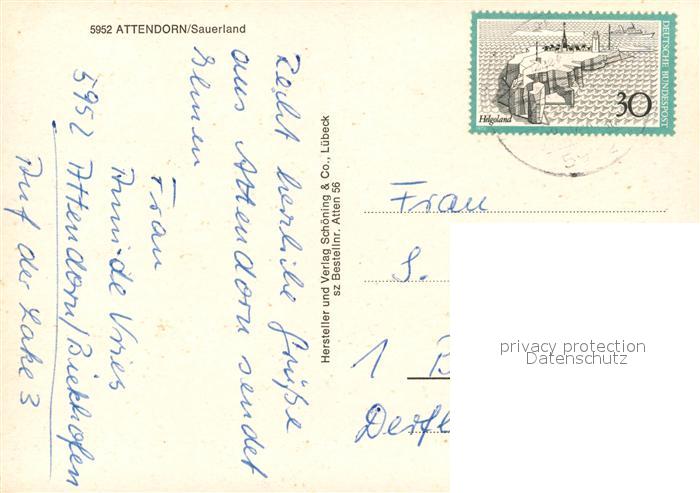 5952 ATTENDORN/Sauerland
Recht herzliche Grüße
aus Attendorn sendet
Ihnen
Frau
Anni de Vries
5952 Attendorn/Biekhofen
Auf der Lake 3
Hersteller und Verlag Schöning & Co., Lübeck
sz Bestellnr. Atten 56
DEUTSCHE BUNDESPOST
Helgoland
30
Frau
S.
1 B
privacy protection
Datenschutz